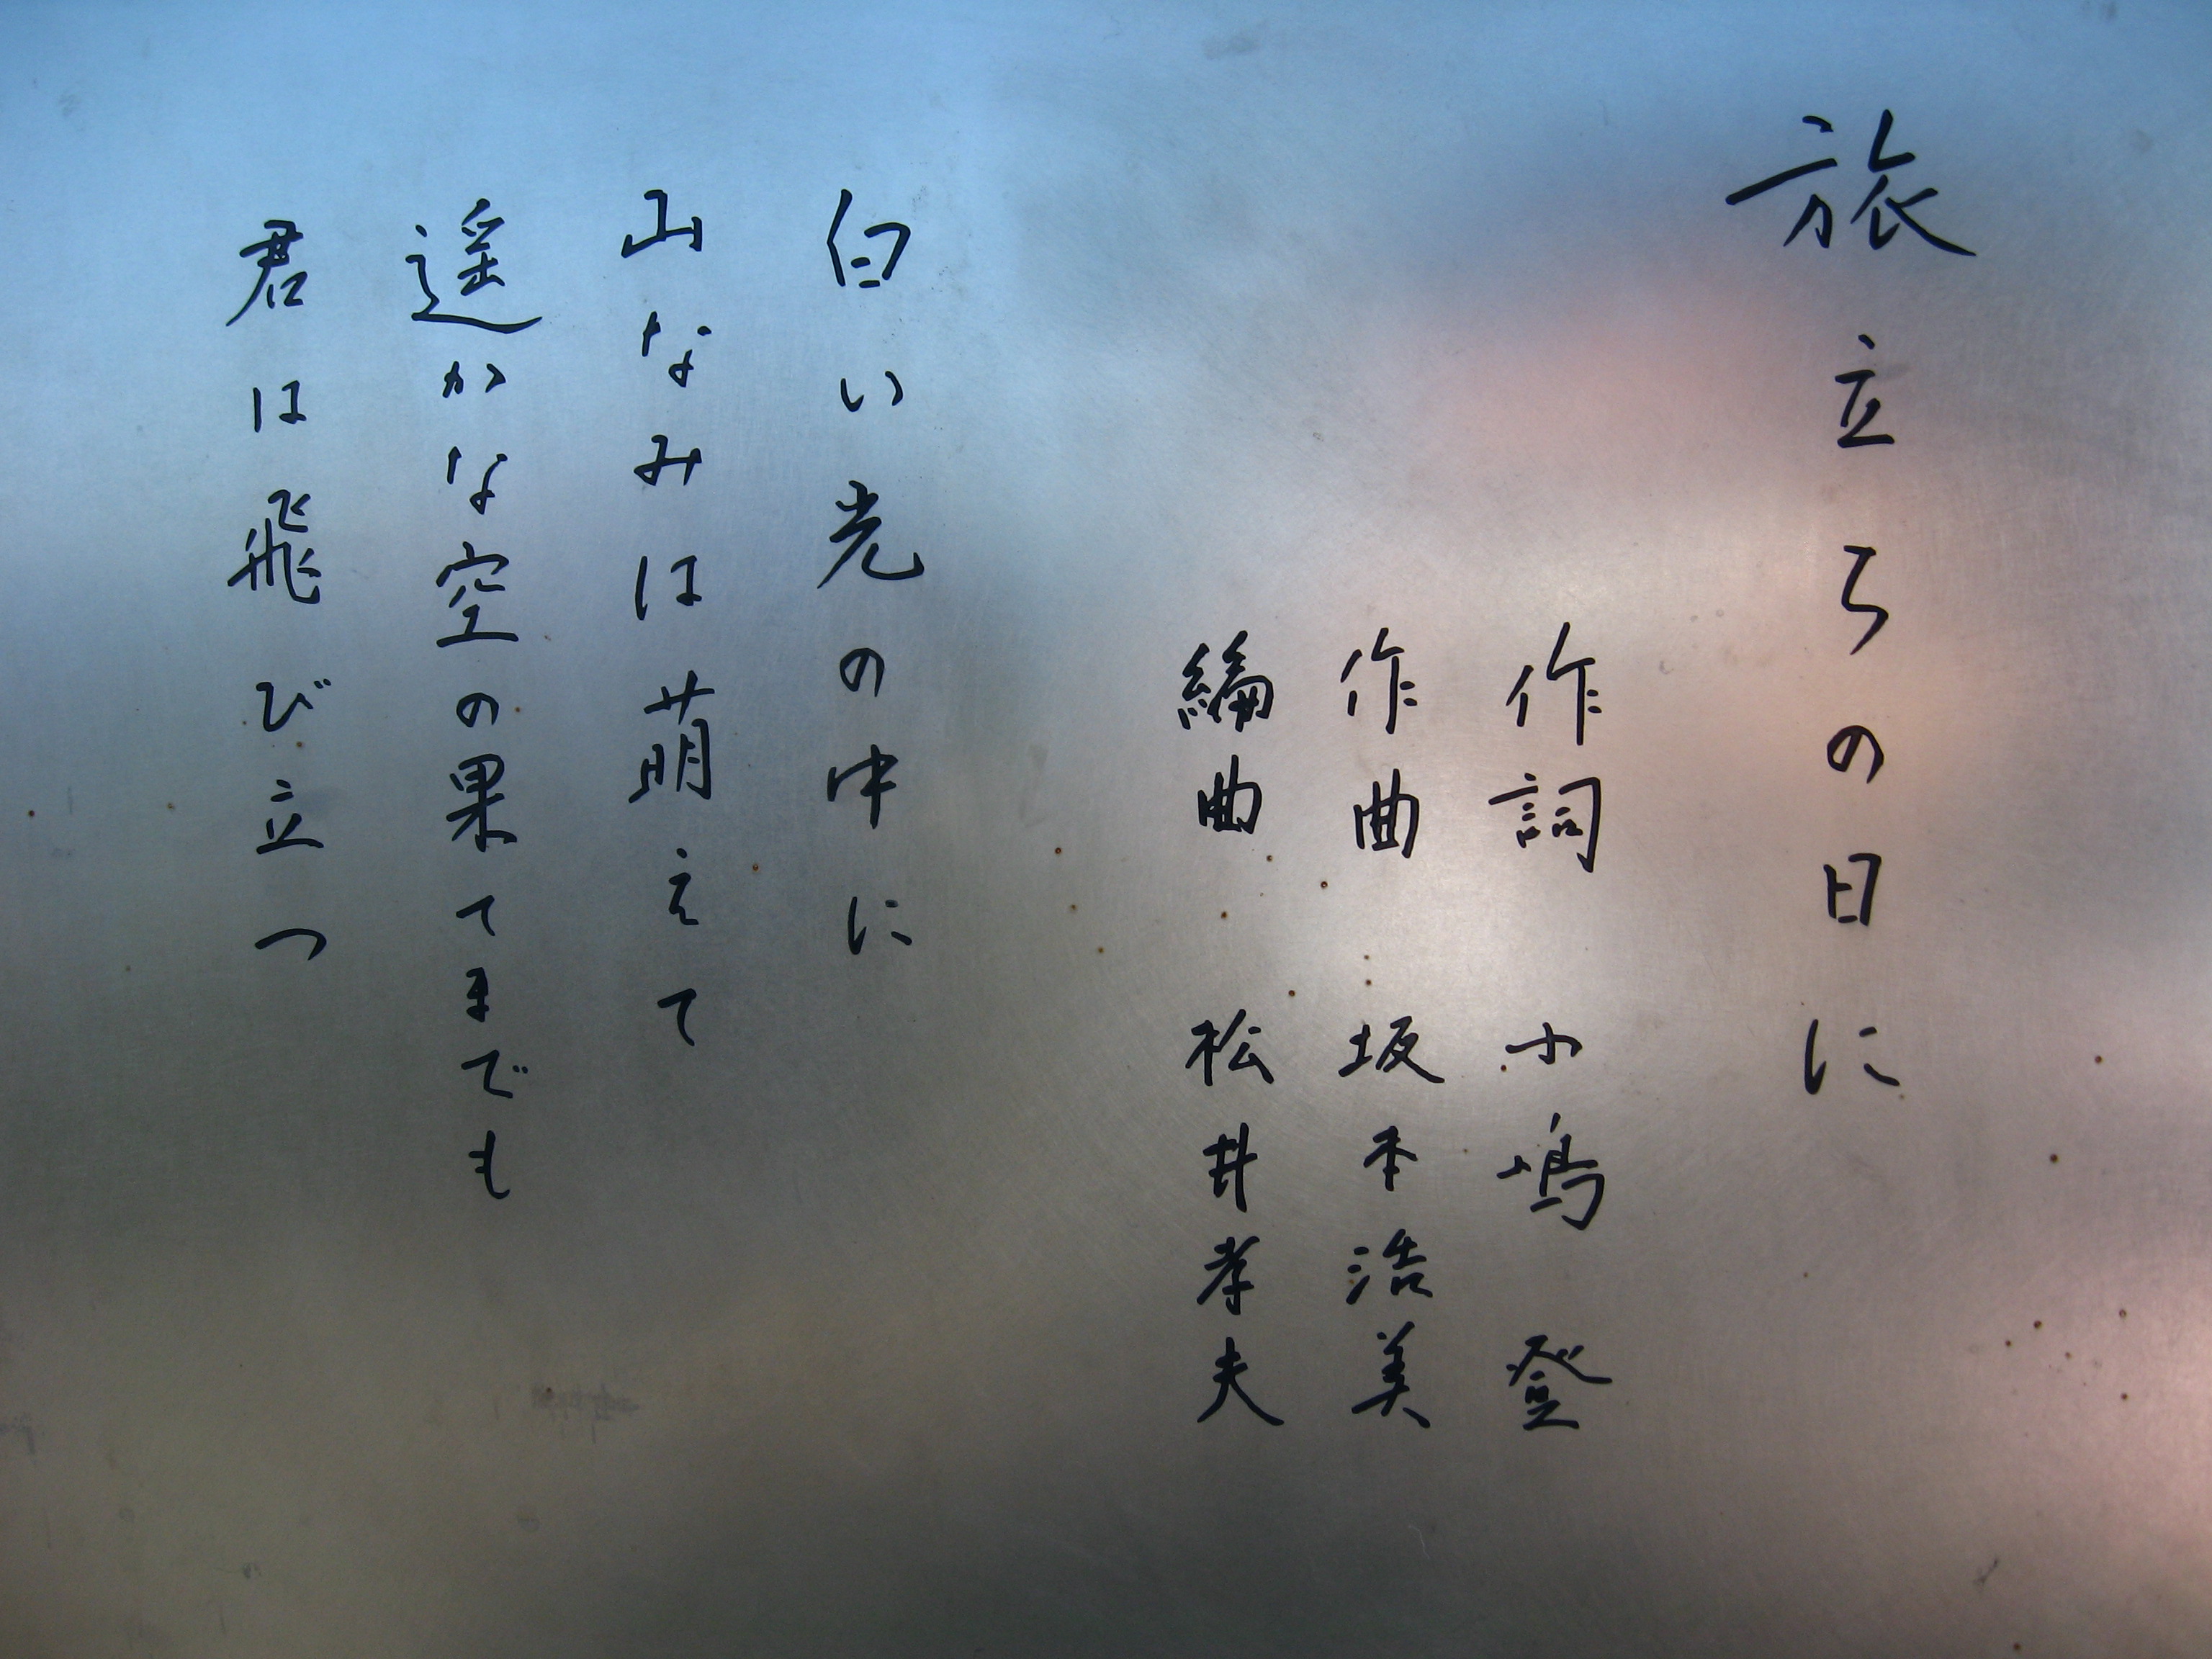 旅立ちの日に
作詞 小嶋 登
作曲 坂本浩美
編曲 松井孝夫
白い光の中に
山なみは萌えて
遥かな空の果てまでも
君は飛び立つ